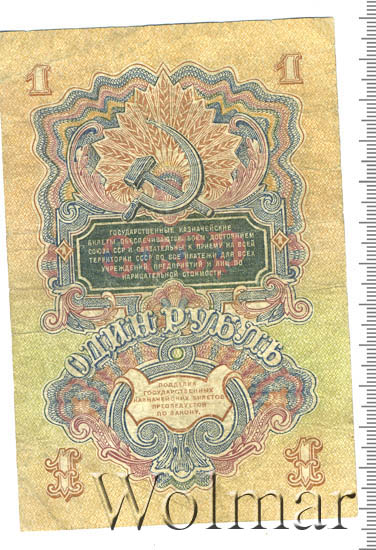 1 1
ГОСУДАРСТВЕННЫЕ КАЗНАЧЕЙСКИЕ
БИЛЕТЫ ОБЕСПЕЧИВАЮТСЯ ВСЕМ ДОСТОЯНИЕМ
СОЮЗА ССР И ОБЯЗАТЕЛЬНЫ К ПРИЕМУ НА ВСЕЙ
ТЕРРИТОРИИ СССР ВО ВСЕ ПЛАТЕЖИ ДЛЯ ВСЕХ
УЧРЕЖДЕНИЙ, ПРЕДПРИЯТИЙ И ЛИЦ ПО
НАРИЦАТЕЛЬНОЙ СТОИМОСТИ.
ОДИН РУБЛЬ
ПОДДЕЛКА
ГОСУДАРСТВЕННЫХ
КАЗНАЧЕЙСКИХ БИЛЕТОВ
ПРЕСЛЕДУЕТСЯ
ПО ЗАКОНУ.
1 1
Wolmar